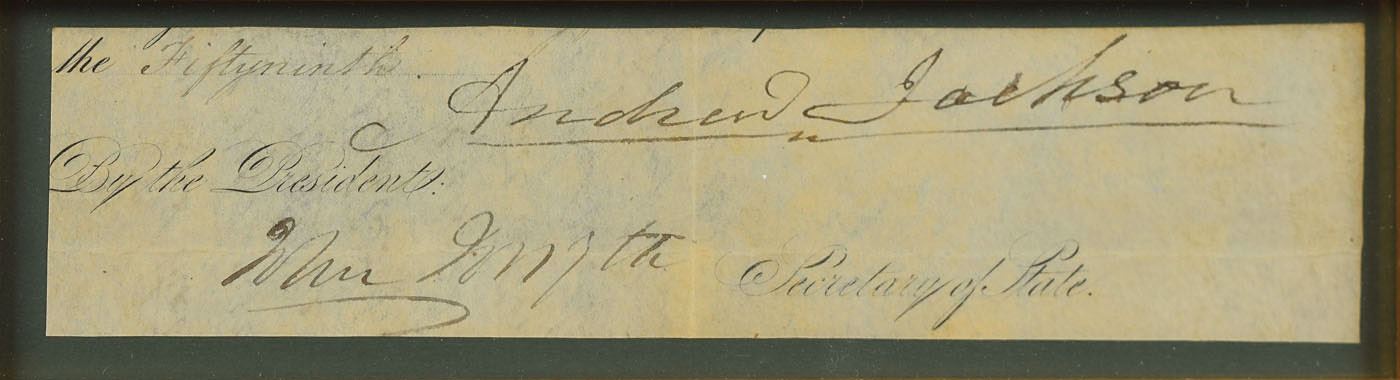 the Fiftyninth.
Andrew Jackson
By the President:
John Forsyth Secretary of State.